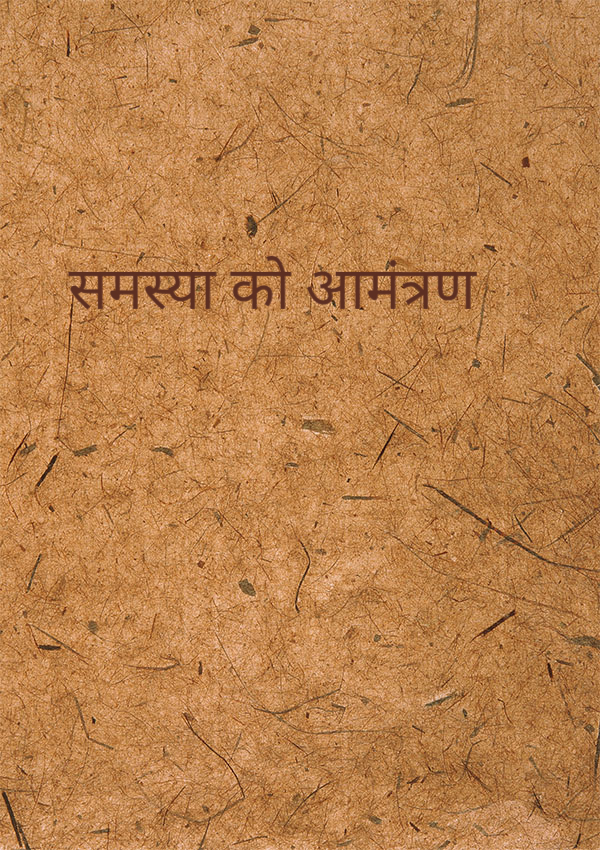 समस्या को आमंत्रण